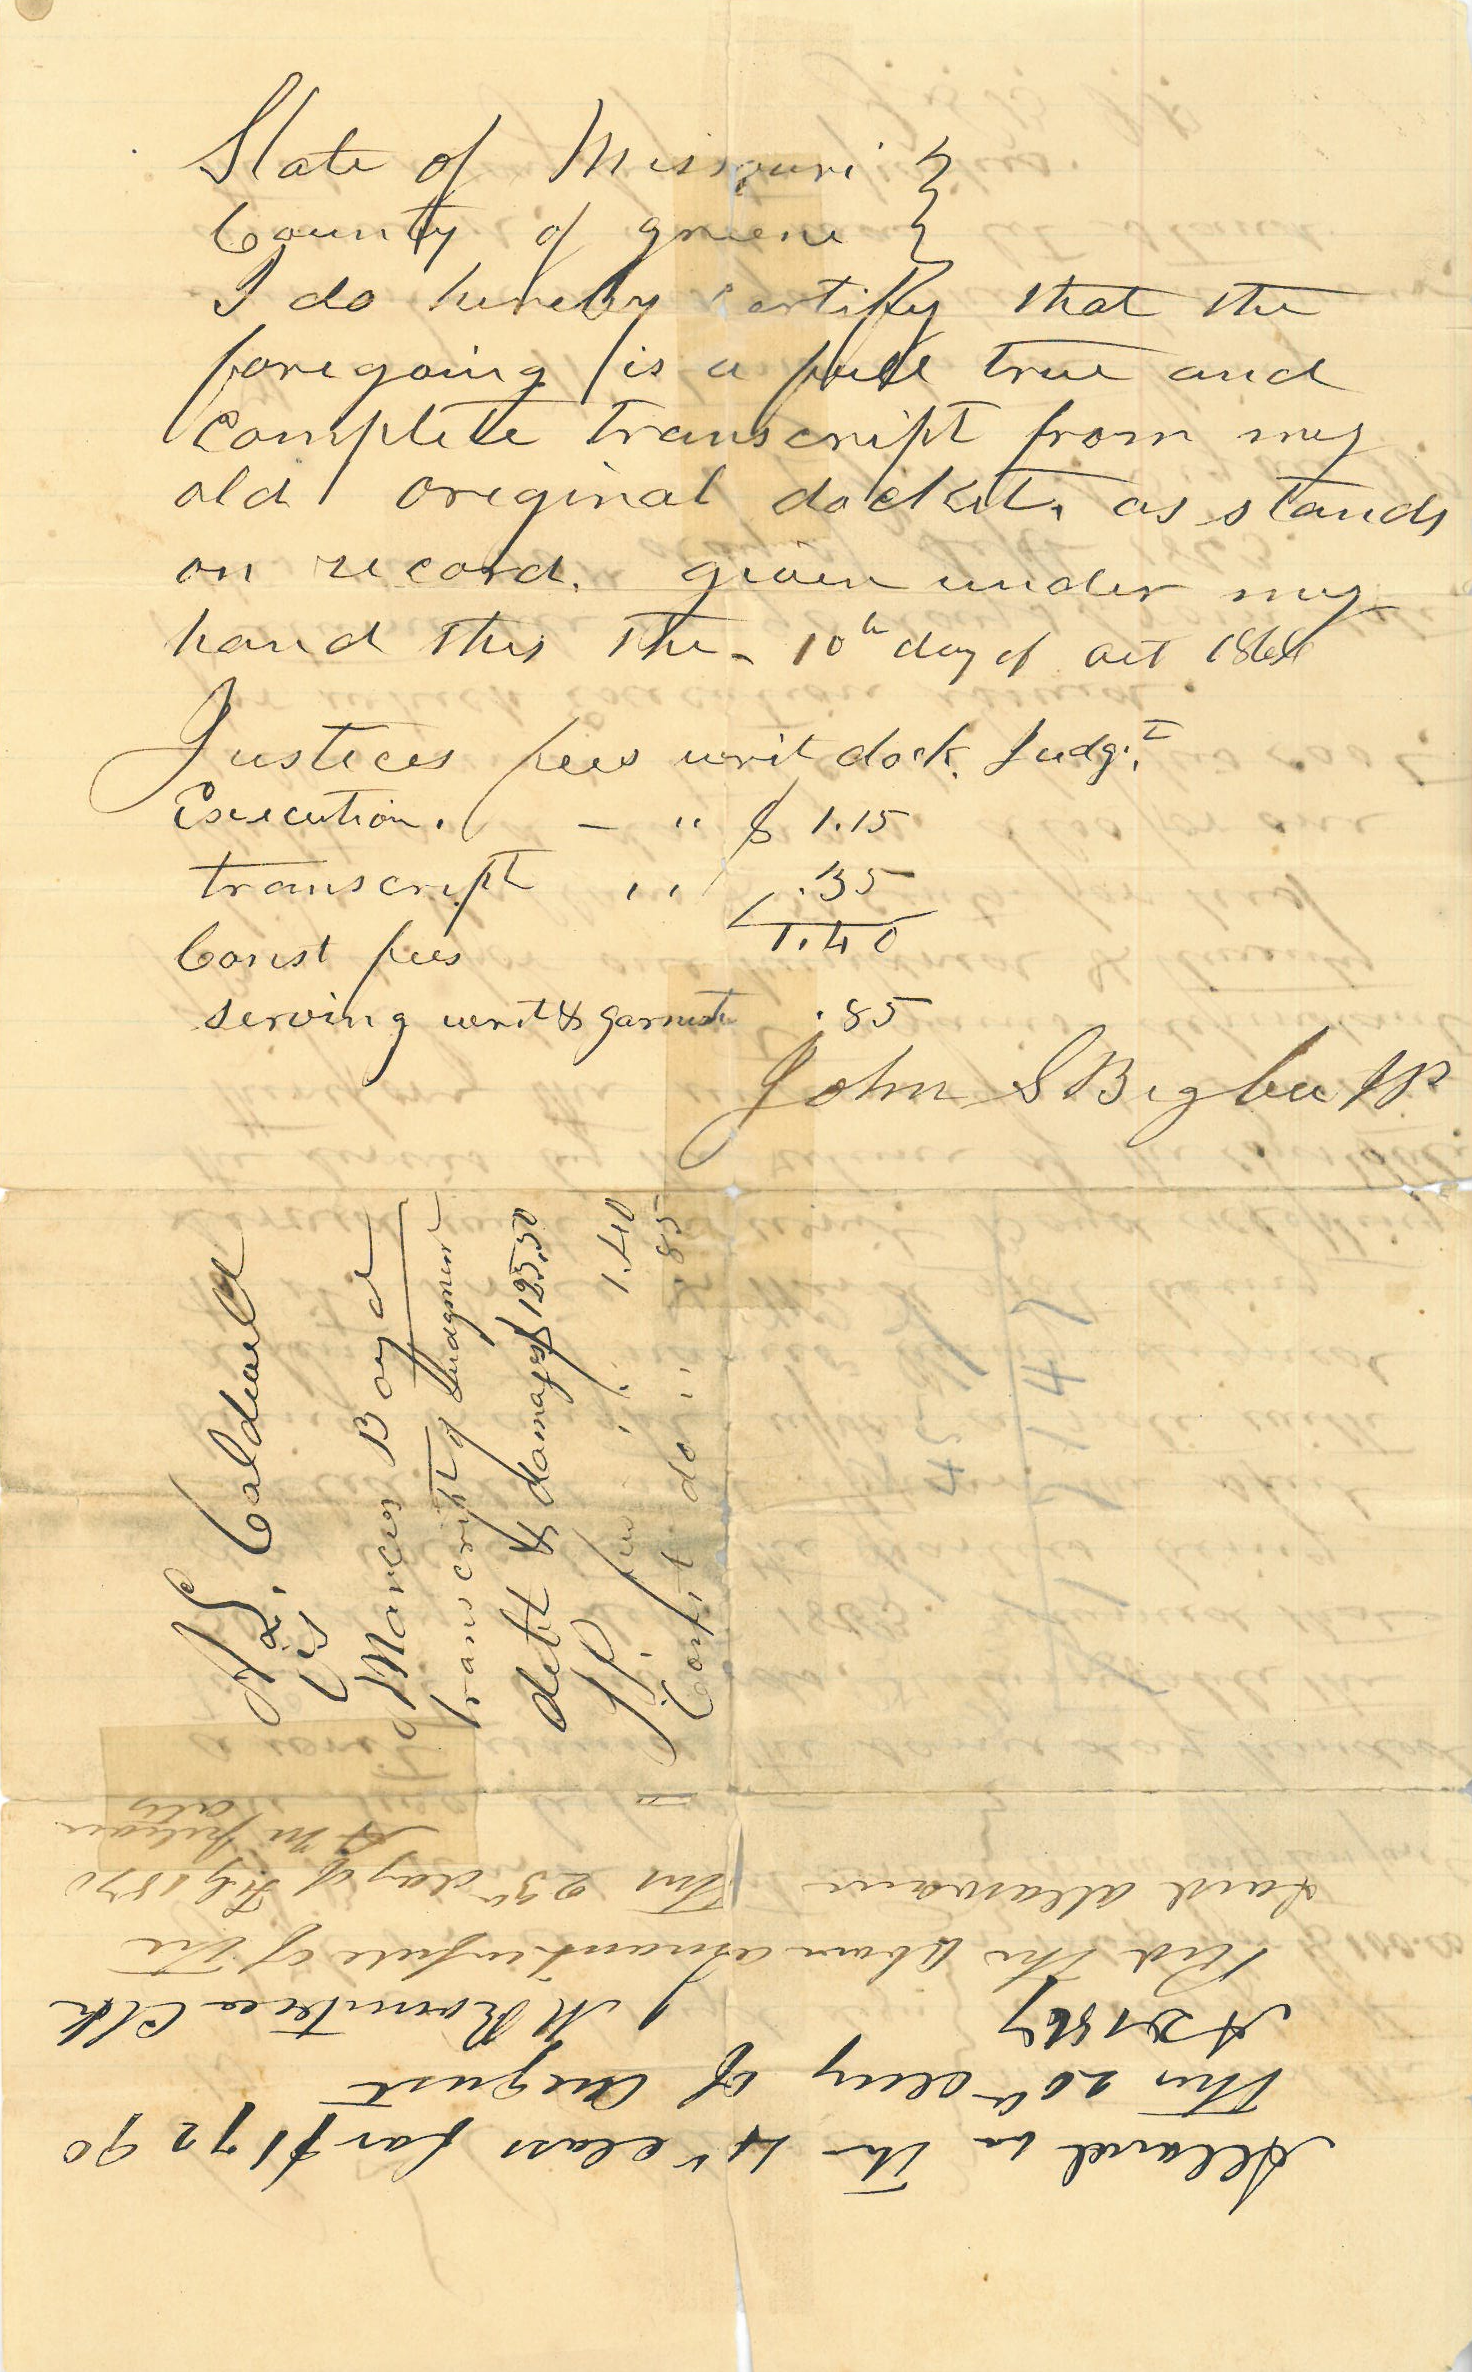 State of Missouri }
County of greene }
I do hereby certify that the
foregoing is a full true and
complete transcript from my
old original docket, as stands
on record. given under my
hand this the - 10th day of oct 1864
Justices fees writ dock. Judg.t
Execution. - " $ 1.15
transcript " .35
1.40
Const fees
serving writ & garnish .85
John S Bigbee JP
Caldwell
vs
Marcus Boyd
transcript of Judgment
debt & damages $125.50
JP. fees " 1.40
Const do " .85
42
1 1 4 5
Allowed in the 4th class for $172 90
This 20th day of August
AD 1867
J M Rountree Clk
Recd the above amount in full of the
said allowance This 23rd day of Feby 1870
A M Julian
atty